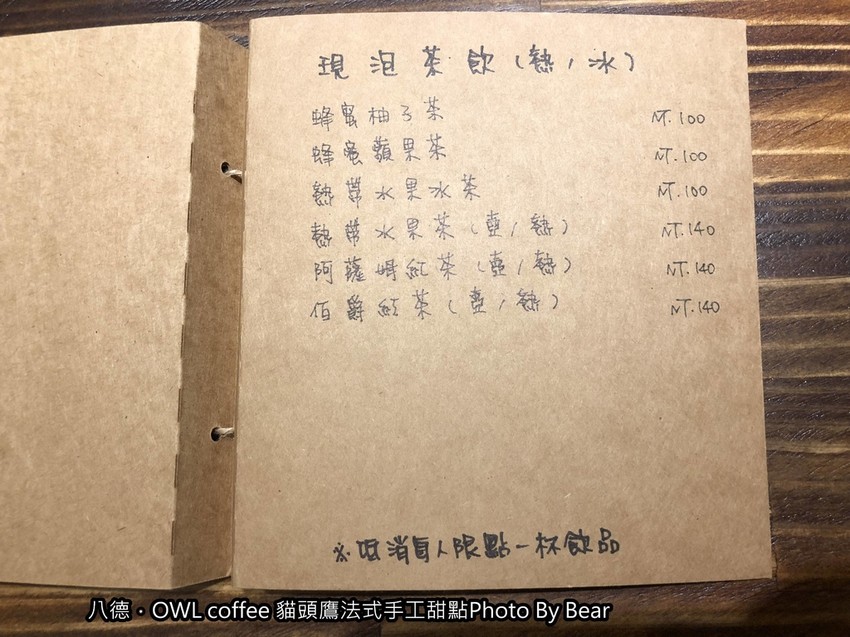 現泡茶飲(熱/冰)
蜂蜜柚子茶 NT.100
蜂蜜蘋果茶 NT.100
熱帶水果冰茶 NT.100
熱帶水果茶(壺/熱) NT.140
阿薩姆紅茶(壺/熱) NT.140
伯爵紅茶(壺/熱) NT.140
※低消每人限點一杯飲品
八德・OWL coffee 貓頭鷹法式手工甜點Photo By Bear